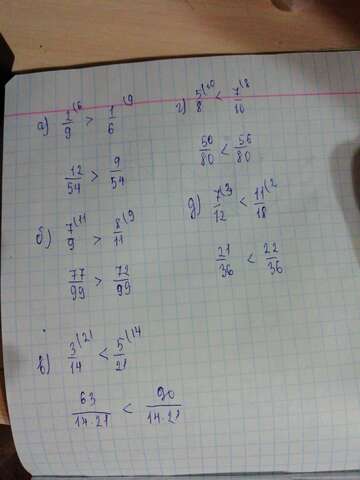 а) 2/9⁽⁶ > 1/6⁽⁹
12/54 > 9/54
б) 7/9⁽¹¹ > 8/11⁽⁹
77/99 > 72/99
в) 3/14⁽²¹ < 5/21⁽¹⁴
63/14·21 < 90/14·21
г) 5/8⁽¹⁰ < 7/10⁽⁸
50/80 < 56/80
д) 7/12⁽³ < 11/18⁽²
21/36 < 22/36